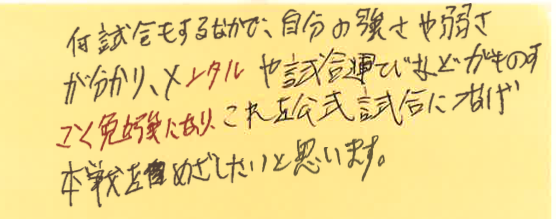 何試合もするなかで、自分の強さや弱さ
が分かり、メンタルや試合運びなどがものす
ごく勉強になり、これを公式試合につなげ
本戦をめざしたいと思います。